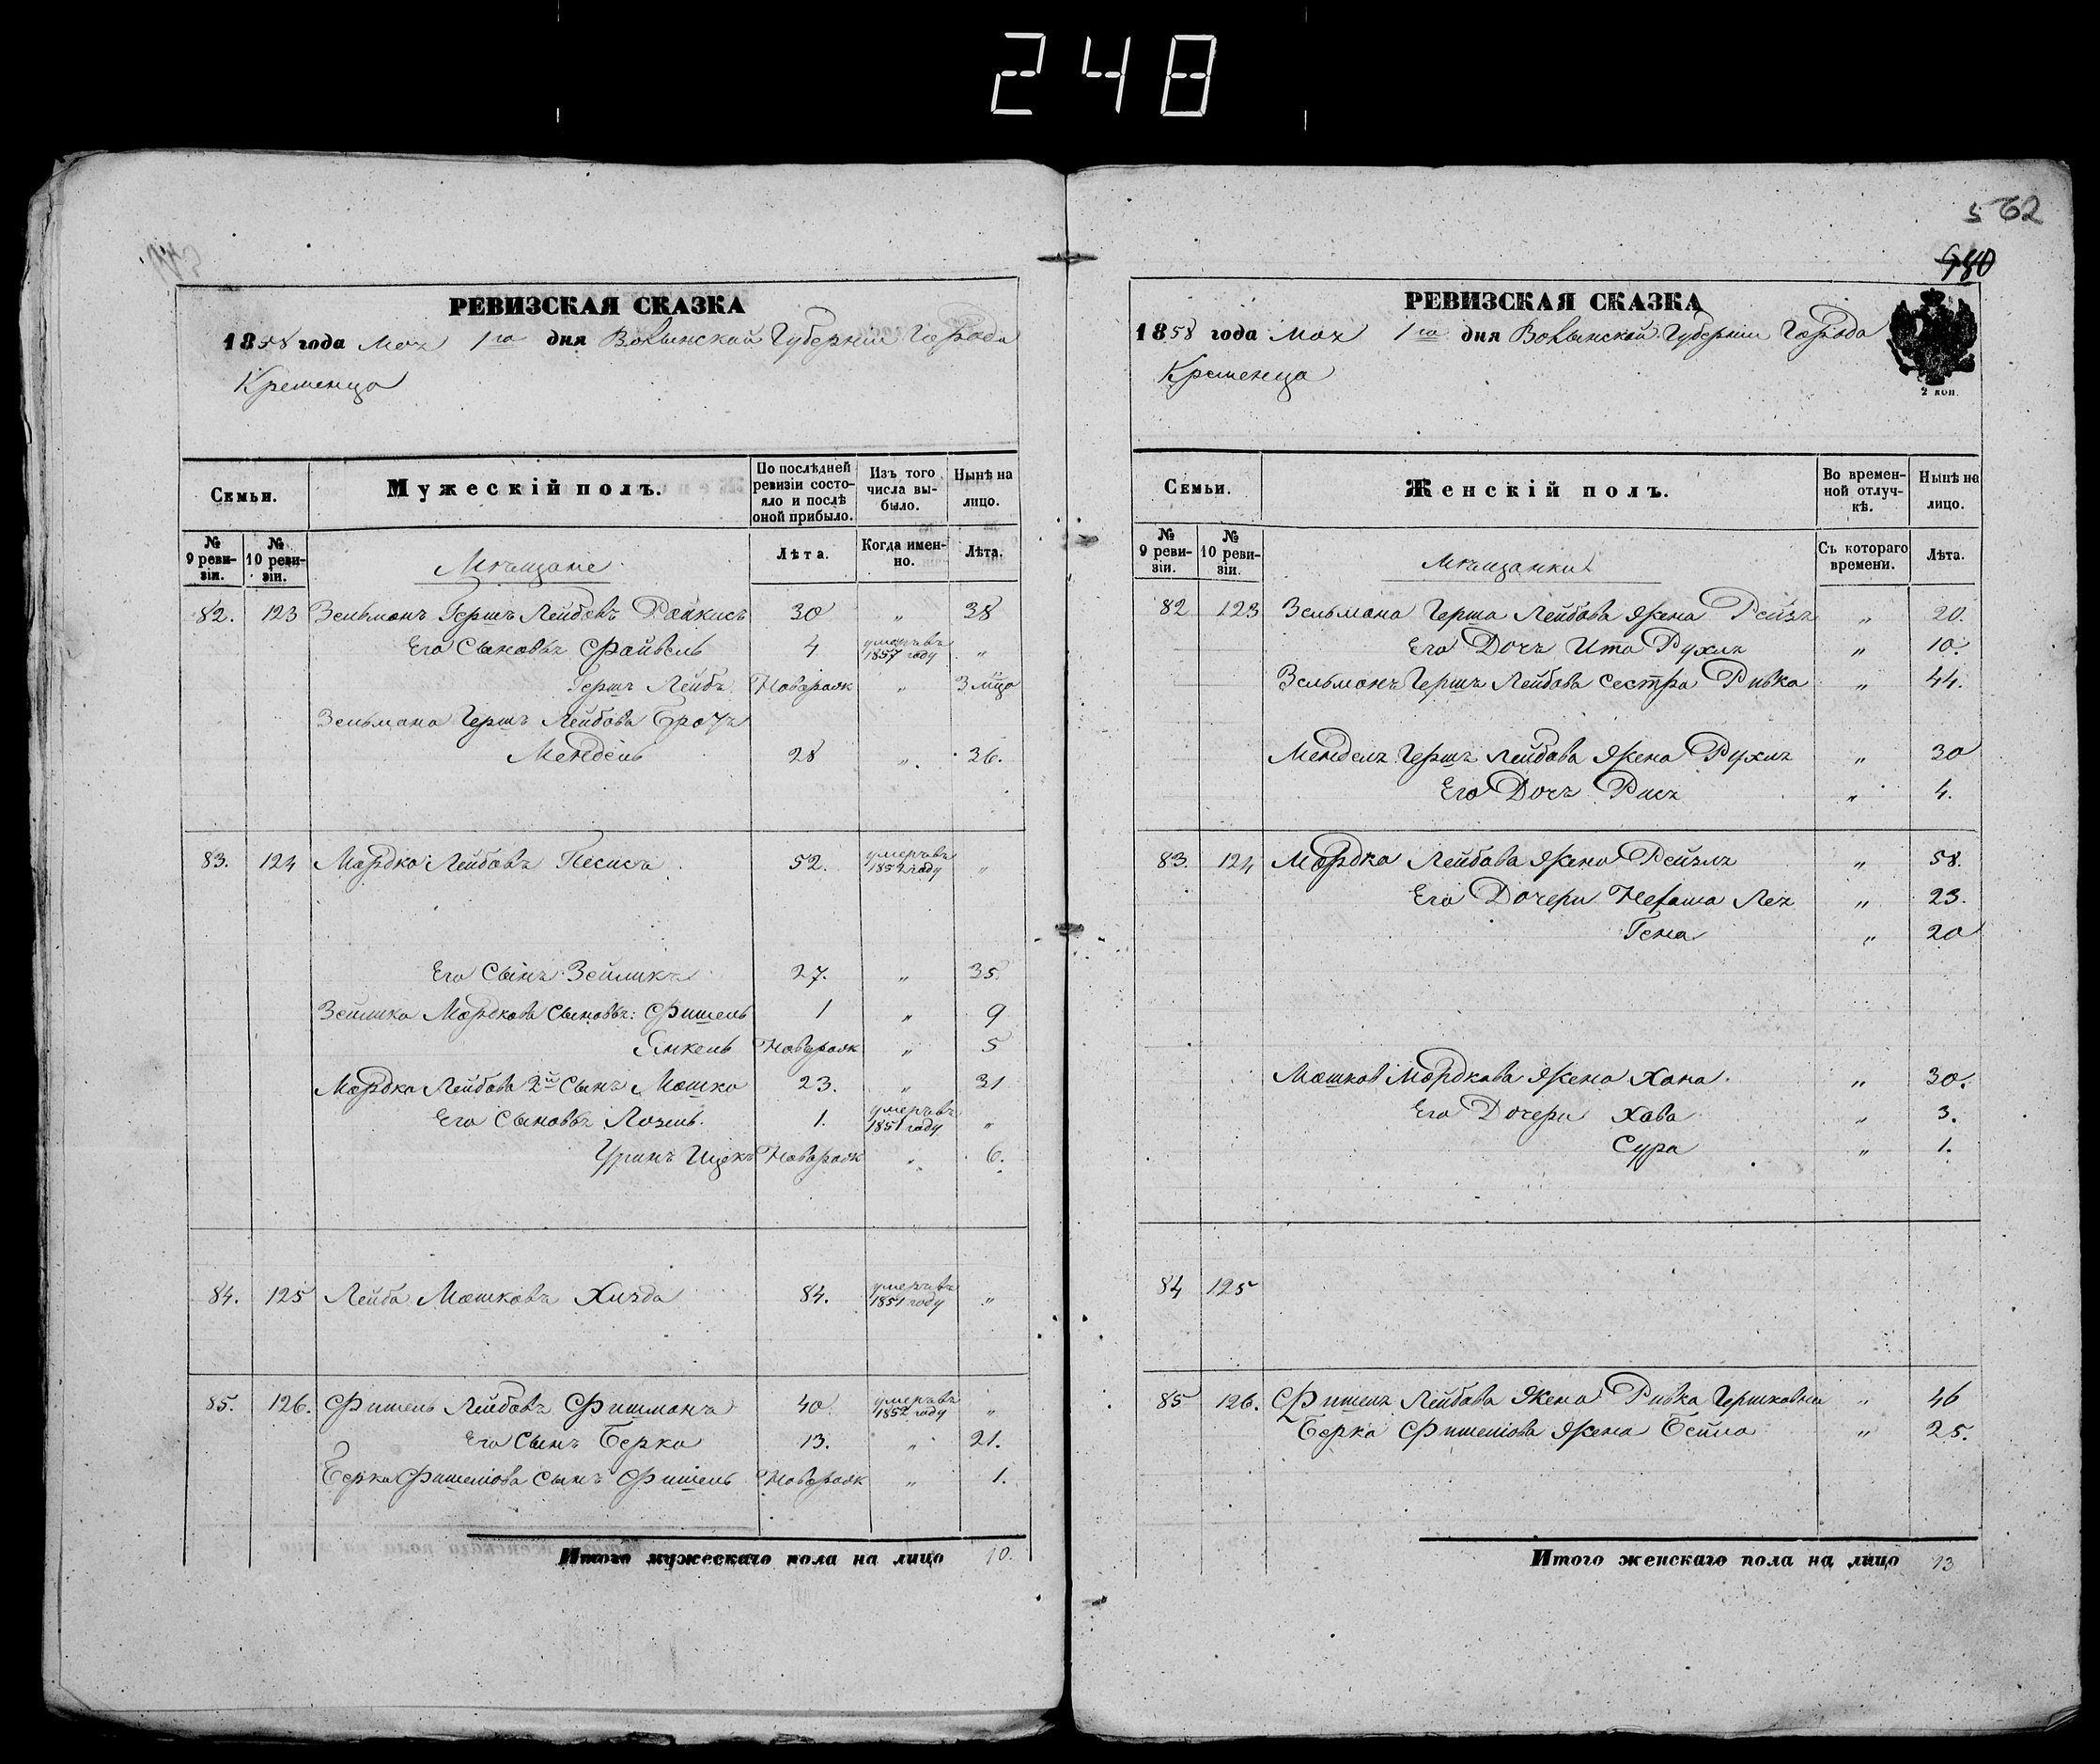 248
РЕВИЗСКАЯ СКАЗКА
1858 года Мая 1го дня Волынской Губерніи Города
Кременца
Семьи.
Мужескій полъ.
По послѣдней ревизіи состояло и послѣ оной прибыло.
Изъ того числа выбыло.
Нынѣ на лицо.
№ 9 ревизіи.
№ 10 ревизіи.
Мѣщане
Лѣта.
Когда именно.
Лѣта.
82. 123 Зельманъ Гершъ Лейбовъ Райкисъ 30 „ 38
Его Сыновья Файвель 4 умеръ въ 1857 году „
Гершъ Лейбъ Новорожд „ 3
Зельмана Гершъ Лейбова Братъ
Мендель 28 „ 36.
83. 124 Мордко Лейбовъ Песисъ 52. умеръ въ 1854 году „
Его Сынъ Зейликъ 27. „ 35.
Зейлика Мордкова Сыновья: Фишель 1 „ 9
Янкель Новорожд „ 5
Мордка Лейбова 2й Сынъ Мошко 23. „ 31
Его Сыновья Лозель. 1. умеръ въ 1851 году „
Урынъ Ицекъ Новорожд „ 6.
84. 125 Лейба Мошковъ 84. умеръ въ 1851 году „
85. 126. Фишель Лейбовъ Фишманъ 40 умеръ въ 1852 году „
Его Сынъ Берко 13. „ 21.
Берка Фишелiова Сынъ Фишель Новорожд „ 1.
Итого мужескаго пола на лицо 10.
562
РЕВИЗСКАЯ СКАЗКА
1858 года Мая 1го дня Волынской Губерніи Города
Кременца
2 коп.
Семьи.
Женскій полъ.
Во временной отлучкѣ.
Нынѣ на лицо.
№ 9 ревизіи.
№ 10 ревизіи.
Мѣщанки
Съ котораго времени.
Лѣта.
82 123 Зельмана Герша Лейбова Жена Рейзя „ 20.
Его Дочь Ита Рухля „ 10.
Зельманъ Гершъ Лейбова Сестра Ривка „ 44.
Менделя Гершъ Лейбова Жена Рухля „ 30
Его Дочь Рися „ 4.
83. 124 Мордка Лейбова Жена Рейзля „ 58.
Его Дочери Нехама Лея „ 23.
Гена „ 20
Мошков Мордкова Жена Хана. „ 30.
Его Дочери Хава „ 3.
Сура „ 1.
84 125
85 126. Фишеля Лейбова Жена Ривка Гершковна „ 46
Берка Фишелiова Жена Бейла „ 25.
Итого женскаго пола на лицо 13